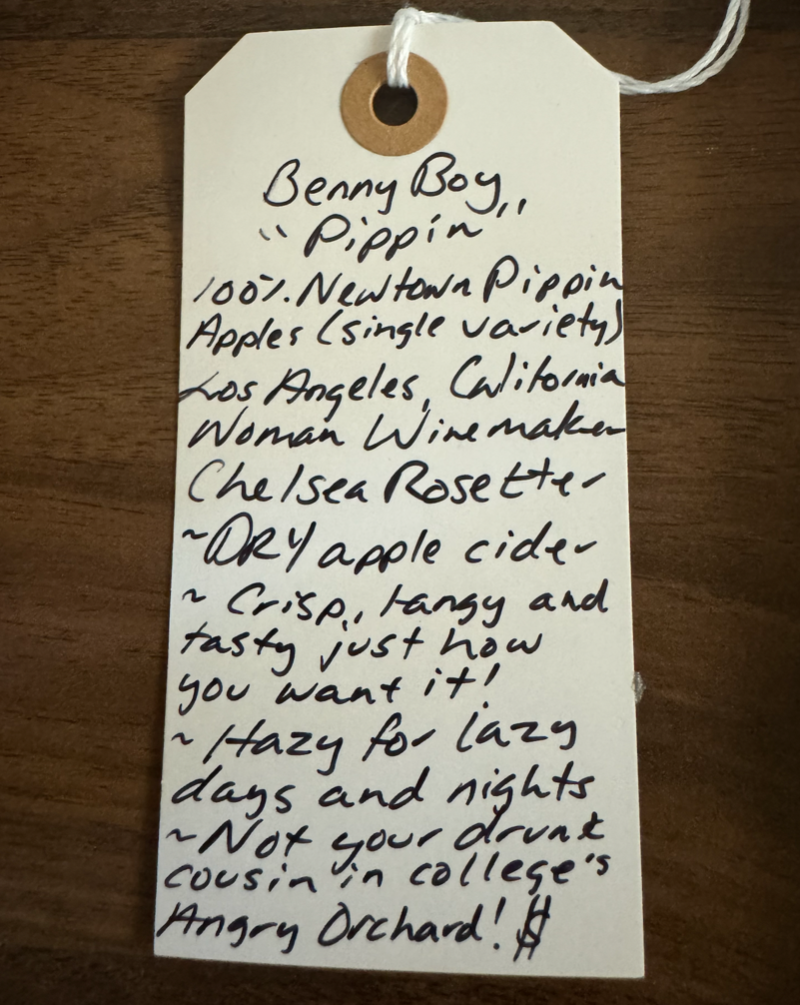 Benny Boy
"Pippin"
100% Newtown Pippin
Apples (single variety)
Los Angeles, California
Woman Winemaker
Chelsea Rosetter
~DRY apple cider
~ Crisp, tangy and
tasty just how
you want it!
~ Hazy for lazy
days and nights
~Not your drunk
cousin in college's
Angry Orchard! $